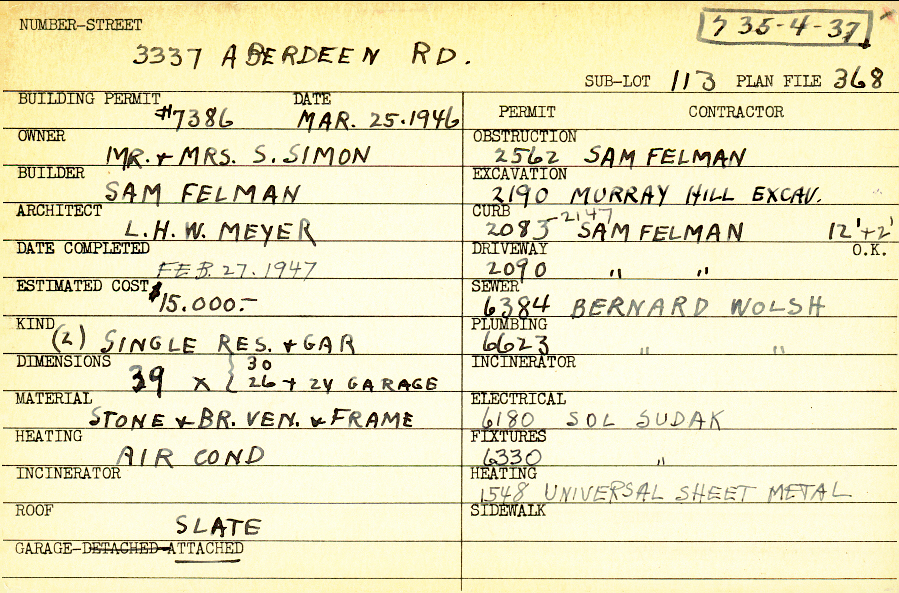 NUMBER-STREET
735-4-37
3337 ABERDEEN RD.
SUB-LOT 113 PLAN FILE 368
BUILDING PERMIT #7386 DATE MAR. 25.1946
OWNER MR. + MRS. S. SIMON
BUILDER SAM FELMAN
ARCHITECT L.H.W. MEYER
DATE COMPLETED FEB. 27.1947
ESTIMATED COST $15.000.-
KIND (2) SINGLE RES. + GAR
DIMENSIONS 39 x { 30
26 + 24 GARAGE
MATERIAL STONE + BR. VEN. + FRAME
HEATING AIR COND
INCINERATOR
ROOF SLATE
GARAGE-DETACHED-ATTACHED
PERMIT CONTRACTOR
OBSTRUCTION 2562 SAM FELMAN
EXCAVATION 2190 MURRAY HILL EXCAV.
CURB 2085-2147 SAM FELMAN 12'+2'
O.K.
DRIVEWAY 2090 " "
SEWER 6384 BERNARD WOLSH
PLUMBING 6623 " "
INCINERATOR
ELECTRICAL 6180 SOL SUDAK
FIXTURES 6330 "
HEATING 1548 UNIVERSAL SHEET METAL
SIDEWALK